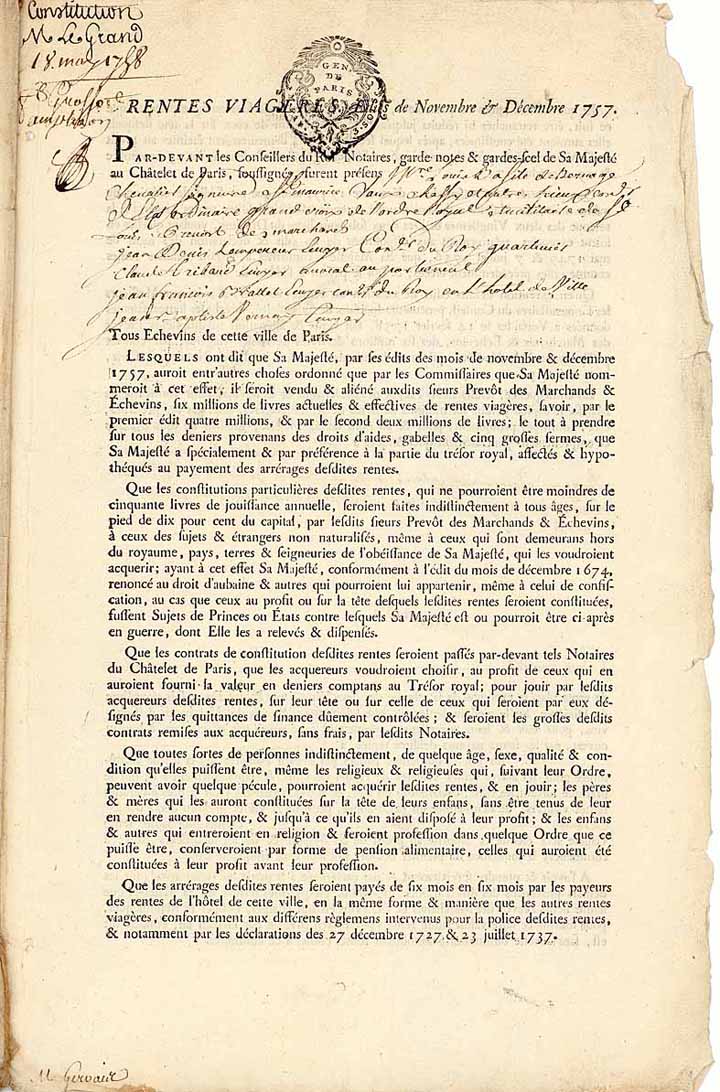 Constitution
M Le Grand
18. may 1758
GEN.
DE
PARIS
RENTES VIAGERES, Édits de Novembre & Décembre 1757.
PAR-DEVANT les Conseillers du Roi Notaires, garde-notes & gardes-scel de Sa Majesté
au Châtelet de Paris, soussignés, furent présens Louis
Chevalier seigneur
ordinaire grand croix de l'ordre Royal & militaire de St
Louis, Prevost des marchands
jean Denis Lempereur Ecuyer Conr. du Roy quartinier
Claude Tribard Ecuyer avocat au parlement
jean francois Brallet Ecuyer conr. du Roy en l'hotel de Ville
jean Baptiste Vernay Ecuyer
Tous Echevins de cette ville de Paris.
LESQUELS ont dit que Sa Majesté, par ses édits des mois de novembre & décembre
1757, auroit entr'autres choses ordonné que par les Commissaires que Sa Majesté nom-
meroit à cet effet, il seroit vendu & aliéné auxdits sieurs Prevôt des Marchands &
Échevins, six millions de livres actuelles & effectives de rentes viagères, savoir, par le
premier édit quatre millions, & par le second deux millions de livres; le tout à prendre
sur tous les deniers provenans des droits d'aides, gabelles & cinq grosses fermes, que
Sa Majesté a spécialement & par préférence à la partie du trésor royal, affectés & hypo-
théqués au payement des arrérages desdites rentes.
Que les constitutions particulières desdites rentes, qui ne pourroient être moindres de
cinquante livres de jouissance annuelle, seroient faites indistinctement à tous âges, sur le
pied de dix pour cent du capital, par lesdits sieurs Prevôt des Marchands & Échevins,
à ceux des sujets & étrangers non naturalisés, même à ceux qui sont demeurans hors
du royaume, pays, terres & seigneuries de l'obéissance de Sa Majesté, qui les voudroient
acquerir; ayant à cet effet Sa Majesté, conformément à l'édit du mois de décembre 1674,
renoncé au droit d'aubaine & autres qui pourroient lui appartenir, même à celui de confis-
cation, au cas que ceux au profit ou sur la tête desquels lesdites rentes seroient constituées,
fussent Sujets de Princes ou États contre lesquels Sa Majesté est ou pourroit être ci-après
en guerre, dont Elle les a relevés & dispensés.
Que les contrats de constitution desdites rentes seroient passés par-devant tels Notaires
du Châtelet de Paris, que les acquereurs voudroient choisir, au profit de ceux qui en
auroient fourni la valeur en deniers comptans au Trésor royal; pour jouir par lesdits
acquereurs desdites rentes, sur leur tête ou sur celle de ceux qui seroient par eux dé-
signés par les quittances de finance dûement contrôlées; & seroient les grosses desdits
contrats remises aux acquéreurs, sans frais, par lesdits Notaires.
Que toutes sortes de personnes indistinctement, de quelque âge, sexe, qualité & con-
dition qu'elles puissent être, même les religieux & religieuses qui, suivant leur Ordre,
peuvent avoir quelque pécule, pourroient acquérir lesdites rentes, & en jouir; les pères
& mères qui les auront constituées sur la tête de leurs enfans, sans être tenus de leur
en rendre aucun compte, & jusqu'à ce qu'ils en aient disposé à leur profit; & les enfans
& autres qui entreroient en religion & feroient profession dans quelque Ordre que ce
puisse être, conserveroient par forme de pension alimentaire, celles qui auroient été
constituées à leur profit avant leur profession.
Que les arrérages desdites rentes seroient payés de six mois en six mois par les payeurs
des rentes de l'hôtel de cette ville, en la même forme & manière que les autres rentes
viagères, conformément aux différens règlemens intervenus pour la police desdites rentes,
& notamment par les déclarations des 27 décembre 1727 & 23 juillet 1737.
M Gervais